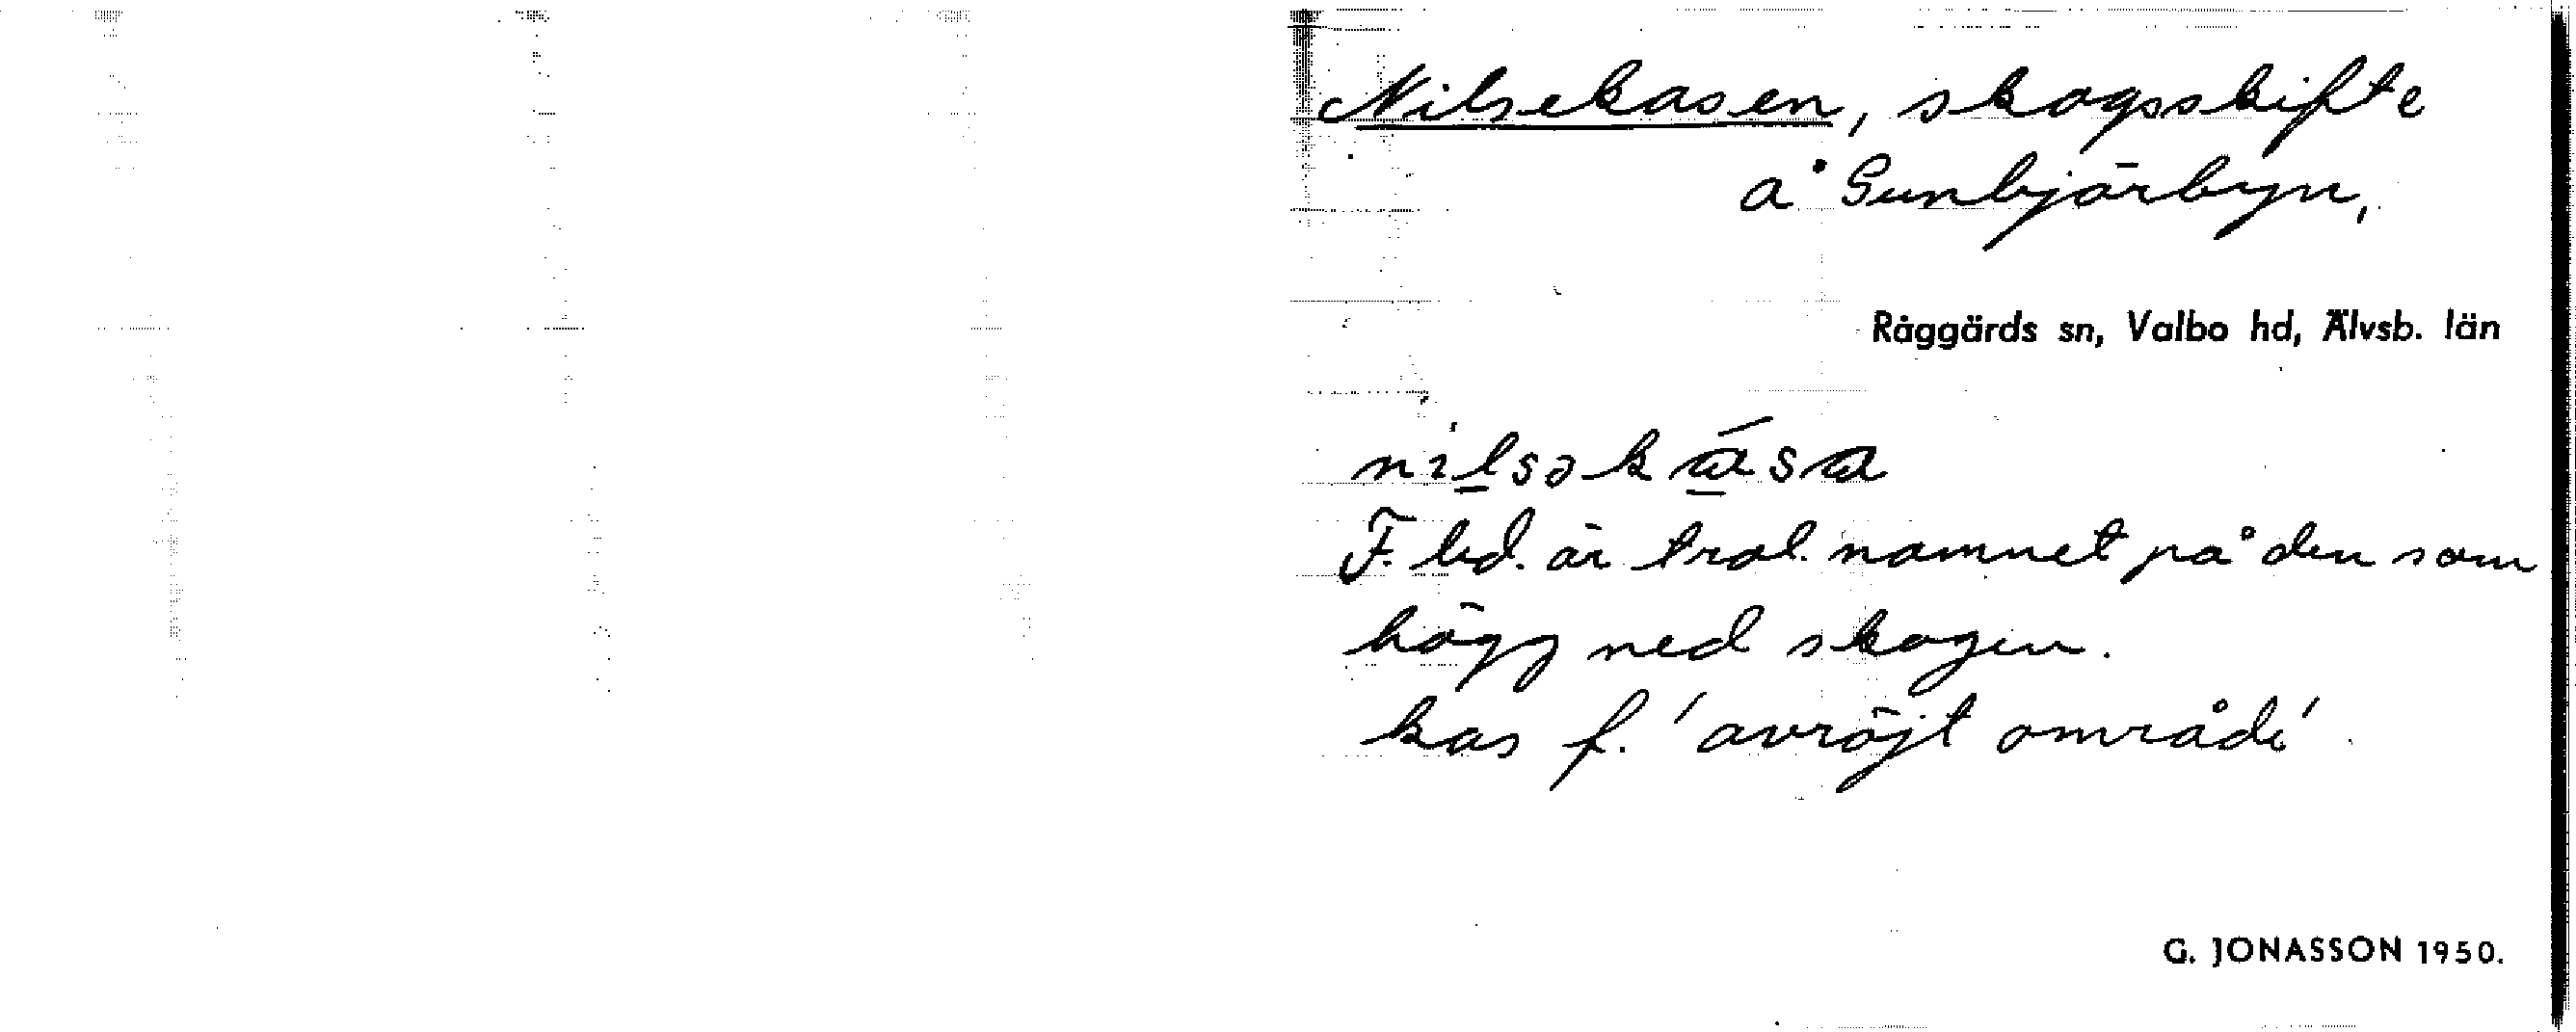 Nilsekasen, skogsskifte
å Gunbjörbyn,
Råggärds sn, Valbo hd, Älvsb. län
nilsəkása
F. led. är trol. namnet på den som
högg ned skogen.
kas f. 'avröjt område'
G. JONASSON 1950.